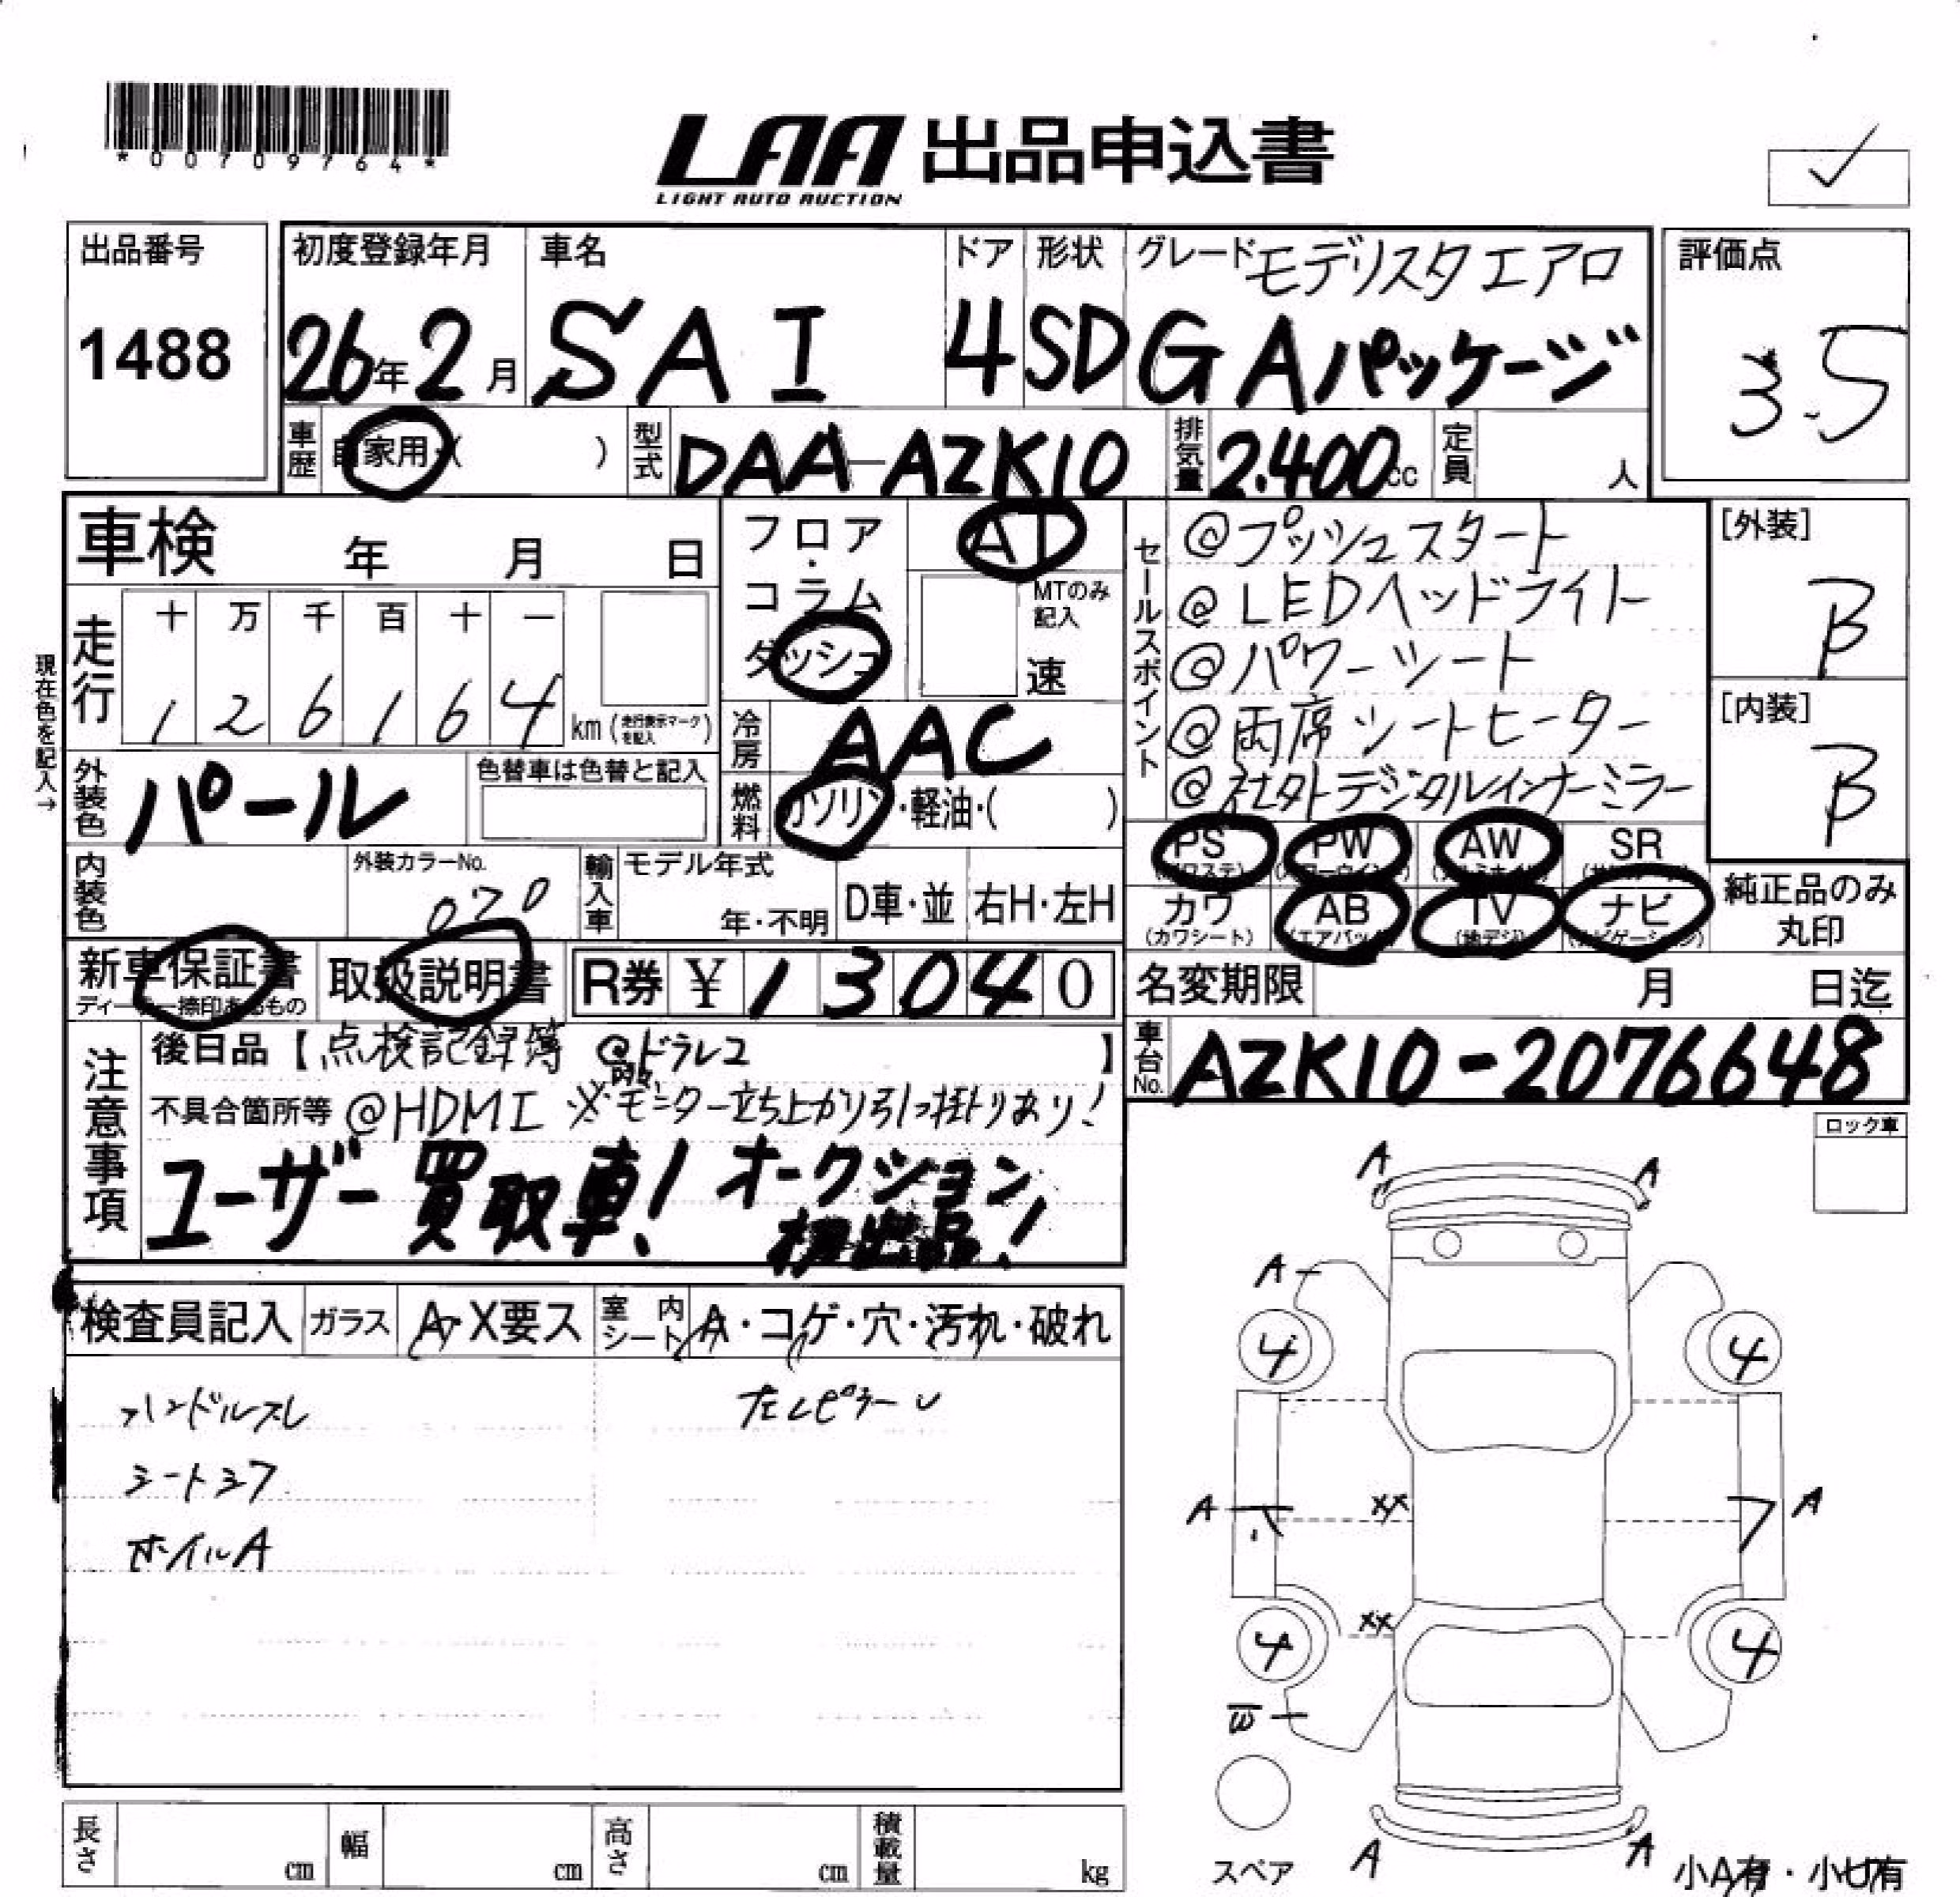 *00709764*
LAA 出品申込書
LIGHT AUTO AUCTION
出品番号
1488
初度登録年月
26年2月
車名
SAI
ドア
4
形状
SD
グレード モデリスタエアロ
G Aパッケージ
評価点
3.5
車歴 自家用・( )
型式 DAA-AZK10
排気量 2.400cc
定員 人
車検 年 月 日
フロア・コラム ダッシュ
AT
MTのみ記入
速
現在色を記入→
走行
十 万 千 百 十 一
1 2 6 1 6 4 km (走行表示マークを記入)
冷房 AAC
燃料 ガソリン・軽油・( )
外装色 パール
色替車は色替と記入
内装色
外装カラーNo.
070
輸入車
モデル年式
年・不明
D車・並
右H・左H
セールスポイント
@プッシュスタート
@LEDヘッドライト
@パワーシート
@両席シートヒーター
@社外デジタルインナーミラー
[外装]
B
[内装]
B
PS PW AW SR
(パワステ) (パワーウインド) (アルミホイル) (サンルーフ)
カワ AB TV ナビ
(カワシート) (エアバック) (地デジ) (ナビゲーション)
純正品のみ丸印
新車保証書
ディーラー捺印あるもの
取扱説明書
R券 ¥ 13040
名変期限 月 日迄
車台No. AZK10-2076648
注意事項
後日品【点検記録簿 @ドラレコ 】
不具合箇所等 @HDMI ※モニター立ち上がり引っ掛りあり!
ユーザー買取車! オークション
初出品!
ロック車
検査員記入
ガラス A・X要ス
室内シート A・コゲ・穴・汚れ・破れ
ハンドルスレ
シートシワ
ホイルA
左CピラーU
A A
A
4 4
A XX A
XX
4 4
W
スペア
A A
小A有・小U有
長さ cm
幅 cm
高さ cm
積載量 kg